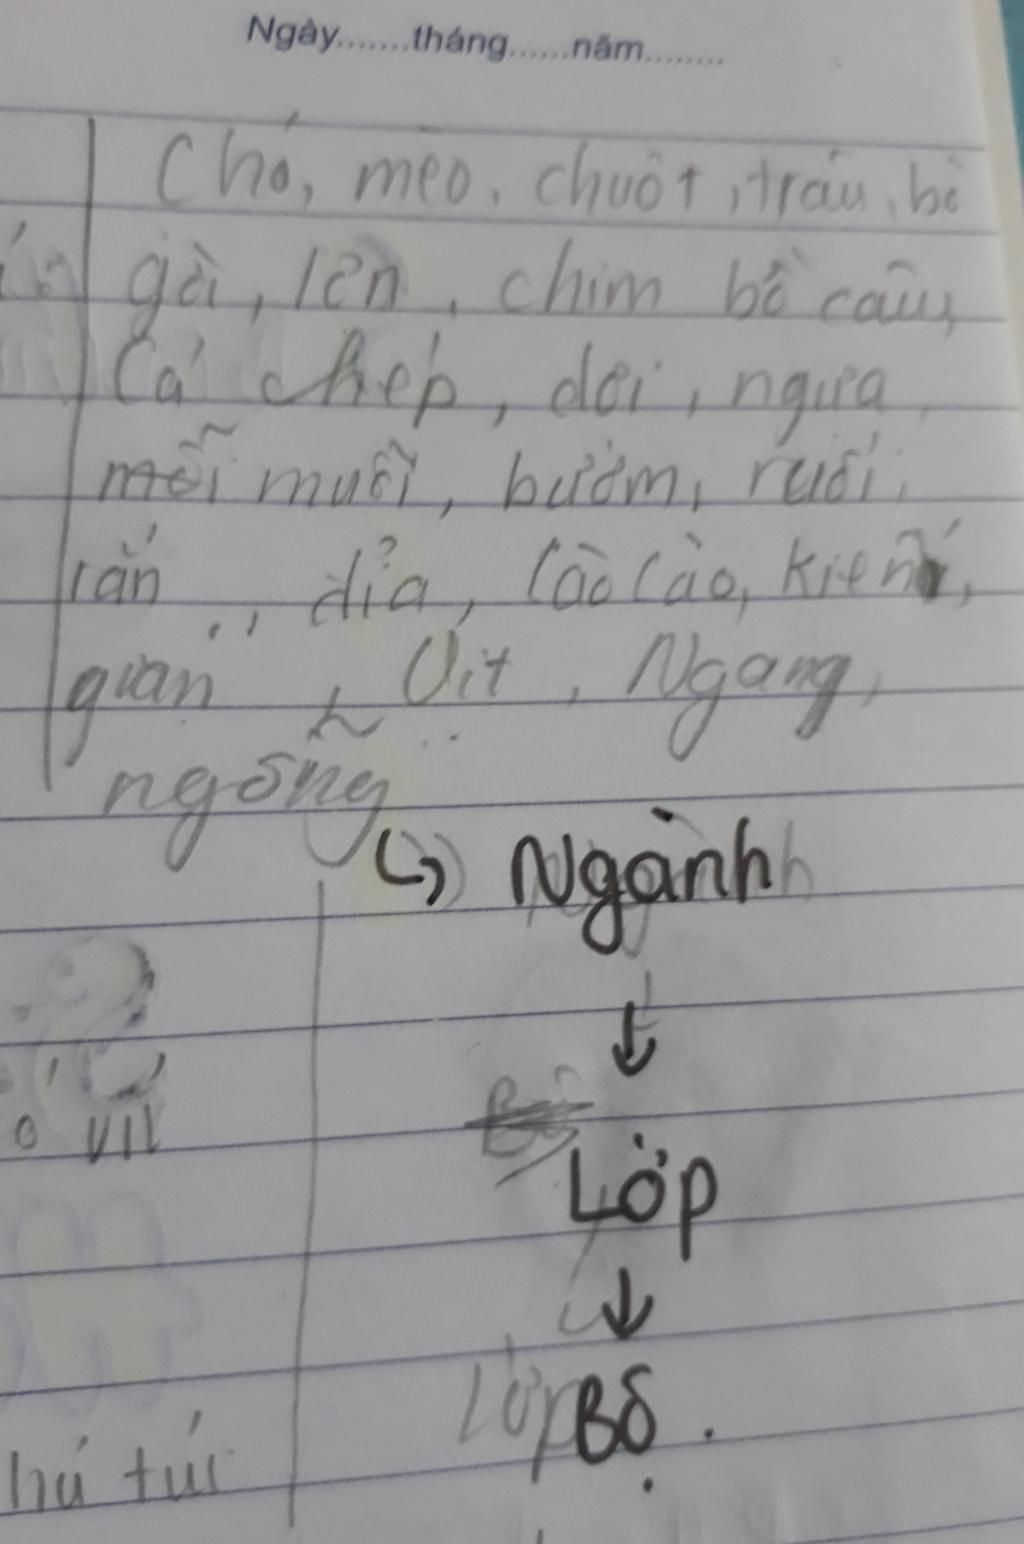 Ngày.......tháng......năm........
Chó, mèo, chuột, trâu, bò
gà, lợn, chim bồ câu,
Cá chép, dơi, ngựa
muỗi, bướm, ruồi,
rắn, đỉa, Cào Cào, kiến,
gián, Vịt, Ngang,
ngỗng
↳ Ngành
↓
Lớp
↓
Bộ.
hú túi